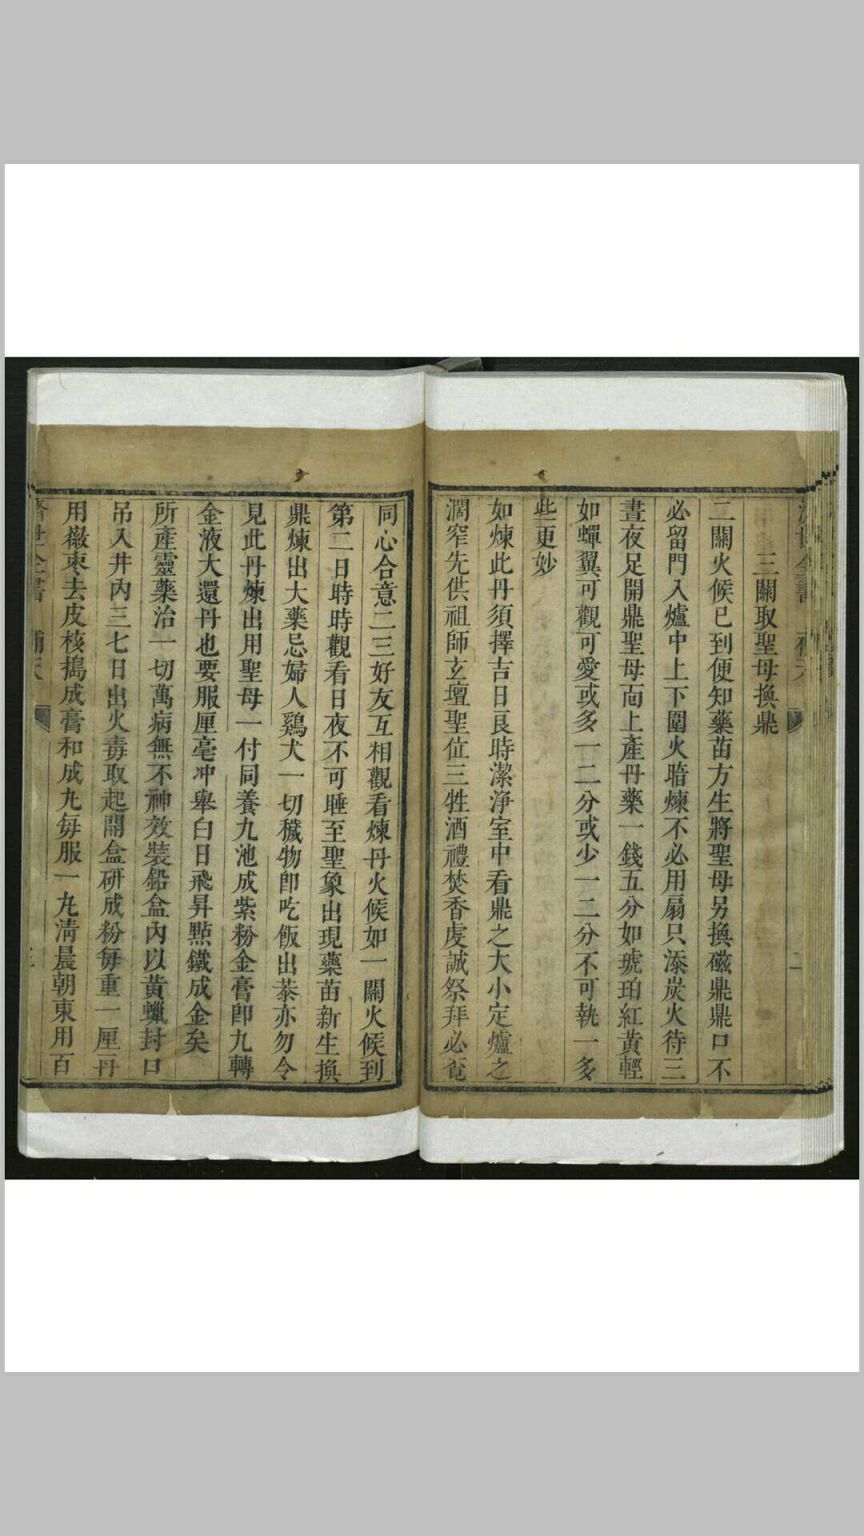 三關取聖母換鼎
二關火候已到便知藥苗方生將聖母另換磁鼎鼎口不
必留門入爐中上下圍火暗煉不必用扇只添炭火待三
晝夜足開鼎聖母面上產丹藥一錢五分如琥珀紅黃輕
如蟬翼可觀可愛或多一二分或少一二分不可執一多
些更妙
如煉此丹須擇吉日良時潔淨室中看鼎之大小定爐之
濶窄先供祖師玄壇聖位三牲酒禮焚香虔誠祭拜必竟
同心合意二三好友互相觀看煉丹火候如一關火候到
第二日時時觀看日夜不可睡至聖象出現藥苗新生換
鼎煉出大藥忌婦人鷄犬一切穢物卽吃飯出恭亦勿令
見此丹煉出用聖母一付同養九池成紫粉金膏卽九轉
金液大還丹也要服厘毫冲舉白日飛昇點鐵成金矣
所產靈藥治一切萬病無不神效裝鉛盒內以黃蠟封口
吊入井內三七日出火毒取起開盒研成粉每重一厘丹
用徽棗去皮核搗成膏和成丸每服一丸清晨朝東用百
濟世全書